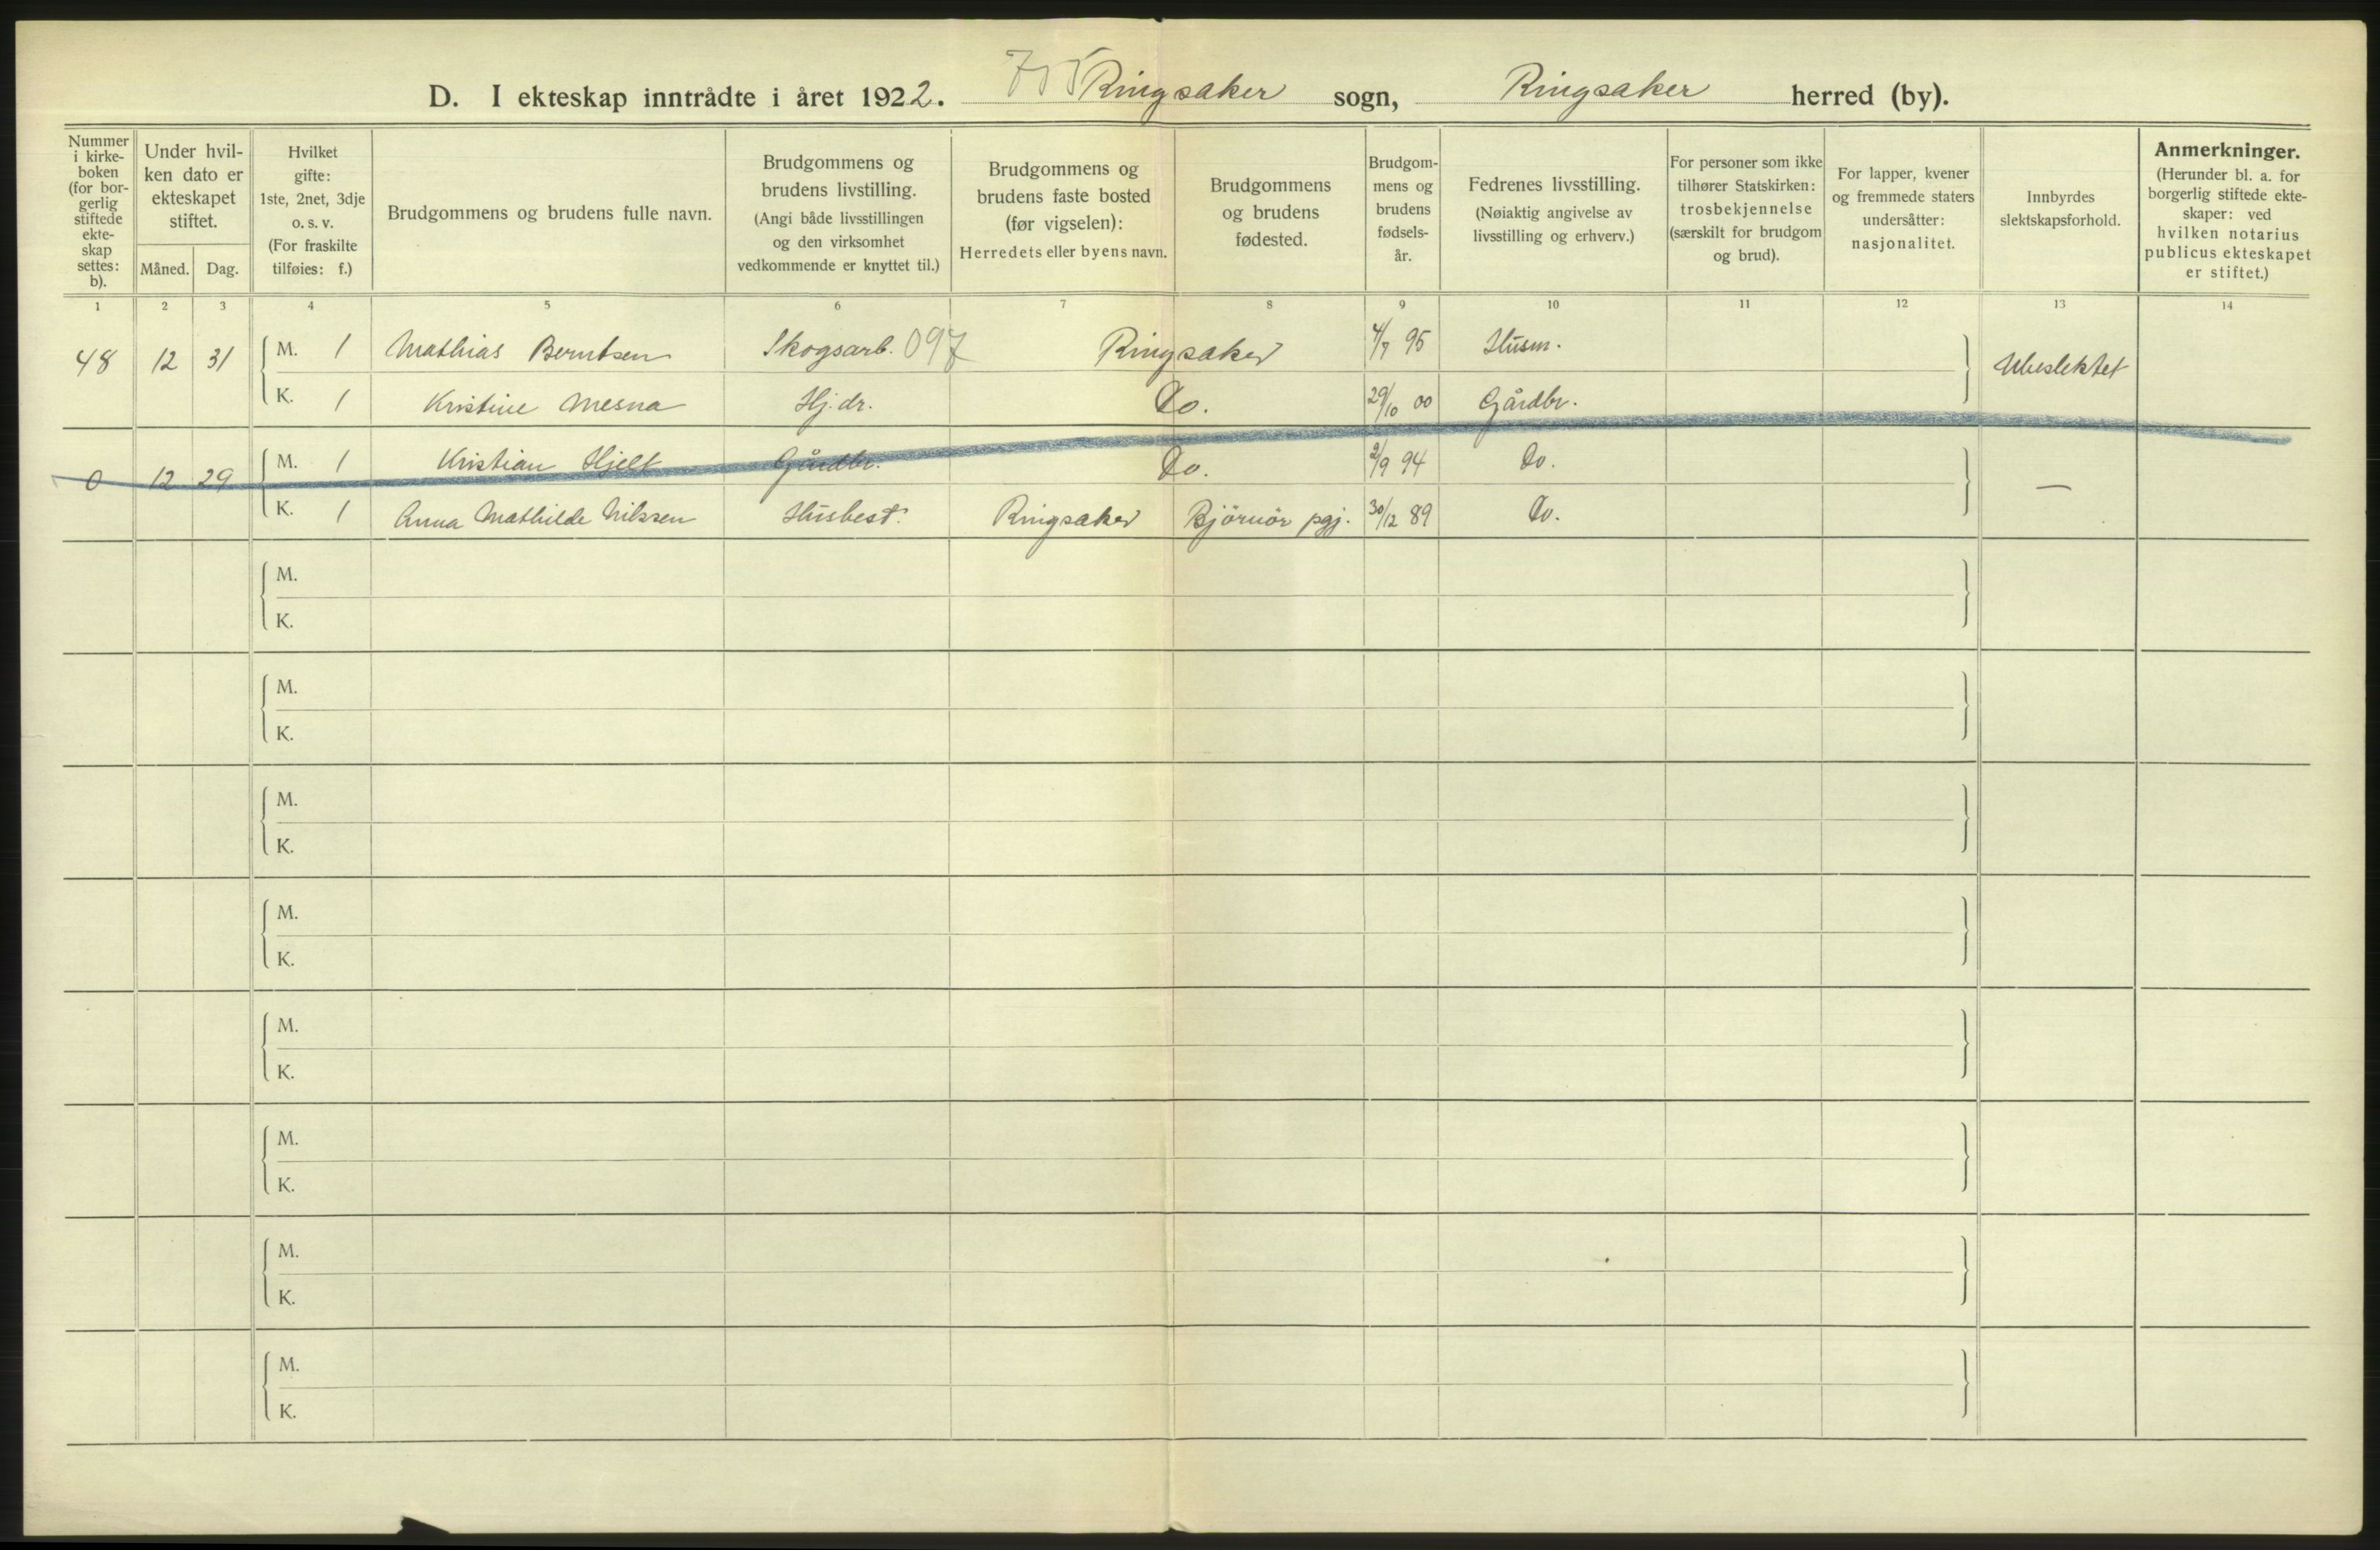 D. I ekteskap inntrådte i året 1922. Ringsaker sogn, Ringsaker herred (by).
Nummer i kirke- boken (for bor- gerlig stiftede ekte- skap settes: b).
Under hvil- ken dato er ekteskapet stiftet.
Måned. Dag.
Hvilket gifte: 1ste, 2net, 3dje o. s. v. (For fraskilte tilføies: f.)
Brudgommens og brudens fulle navn.
Brudgommens og brudens livstilling. (Angi både livsstillingen og den virksomhet vedkommende er knyttet til.)
Brudgommens og brudens faste bosted (før vigselen): Herredets eller byens navn.
Brudgommens og brudens fødested.
Brudgom- mens og brudens fødsels- år.
Fedrenes livsstilling. (Nøiaktig angivelse av livsstilling og erhverv.)
For personer som ikke tilhører Statskirken: trosbekjennelse (særskilt for brudgom og brud).
For lapper, kvener og fremmede staters undersåtter: nasjonalitet.
Innbyrdes slektskapsforhold.
Anmerkninger. (Herunder bl. a. for borgerlig stiftede ekte- skaper: ved hvilken notarius publicus ekteskapet er stiftet.)
1 2 3 4 5 6 7 8 9 10 11 12 13 14
48 12 31 M. 1 Mathias Berntsen Skogsarb. 097 Ringsaker 4/7 95 Husm. Ubeslektet
K. 1 Kristine Mesna Hj. dr. Do. 29/10 00 Gårdbr.
0 12 29 M. 1 Kristian Hjelt Gårdbr. Do. 2/9 94 Do. —
K. 1 Anna Mathilde Nilssen Husbest. Ringsaker Bjørnør pgj. 30/12 89 Do.
M.
K.
M.
K.
M.
K.
M.
K.
M.
K.
M.
K.
M.
K.
M.
K.